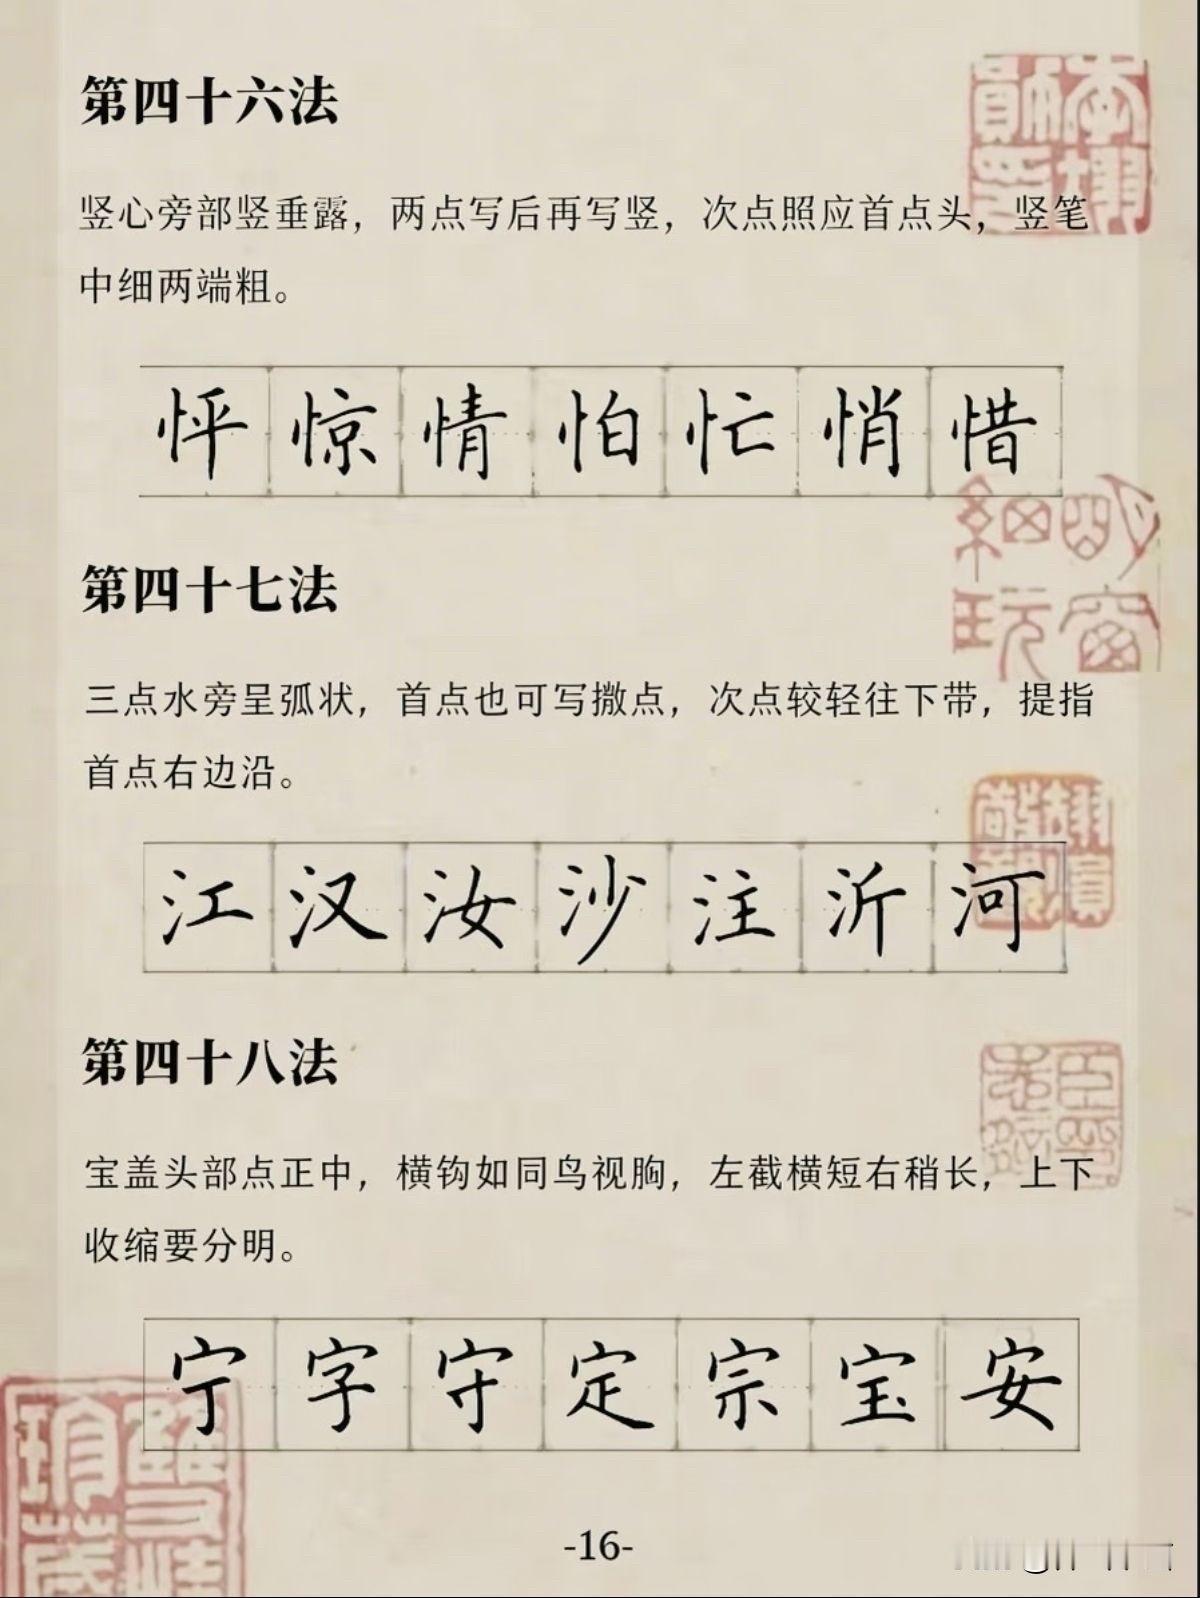 第四十六法
竖心旁部竖垂露，两点写后再写竖，次点照应首点头，竖笔
中细两端粗。
怦惊情怕忙悄惜
第四十七法
三点水旁呈弧状，首点也可写撒点，次点较轻往下带，提指
首点右边沿。
江汉汝沙注沂河
第四十八法
宝盖头部点正中，横钩如同鸟视胸，左截横短右稍长，上下
收缩要分明。
宁字守定宗宝安
-16-